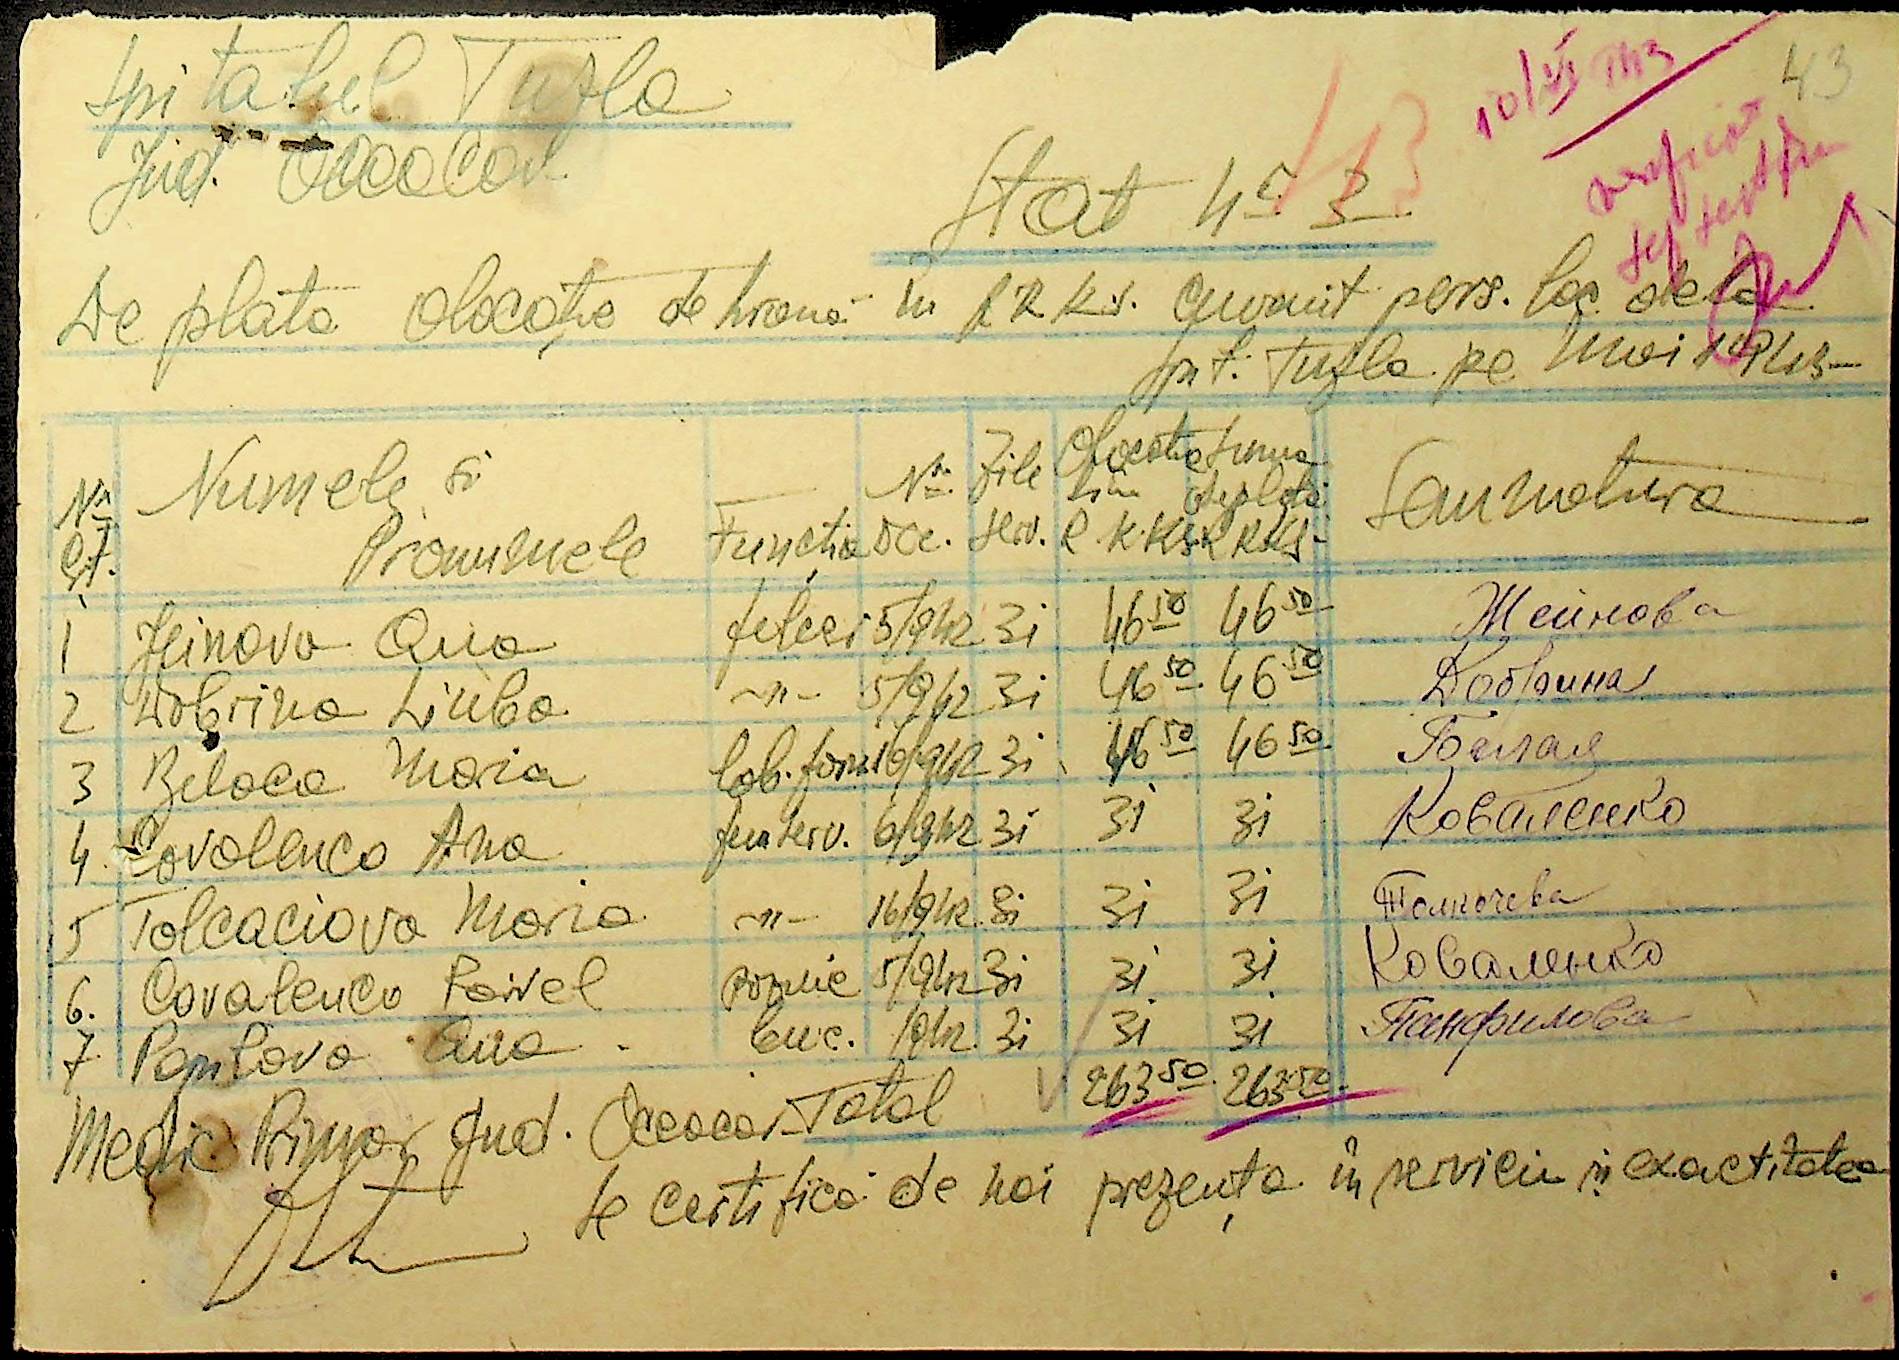 43
Spitalul Tuzla
Jud. Oceacov
Stat No 3
De plata alocației de hrană în RKKS. cuvenit pers. loc. dela
Spit. Tuzla pe Mai 1943
Nr. Crt. Numele și Pronumele Funcția No. Doc. Zile serv. Alocația RKKS Suma de plată RKKS Semnatura
1 Jeinova Ana felcer 5/942 31 46 50 46 50 Жеинова
2 Dobrina Liuba -"- 5/942 31 46 50 46 50 Добрина
3 Beloca Maria 6/942 31 46 50 46 50 Белая
4 Covalenco Ana fem serv. 6/942 31 31 31 Коваленко
5 Tolcaciova Maria -"- 16/942 31 31 31 Толкачева
6. Covalenco Pavel 5/942 31 31 31 Коваленко
7 Ana buc. /942 31 31 31 Панфилова
Total 263 50 263 50
Medic Primar Jud. Oceacov
Se certifică de noi prezența în serviciu și exactitatea